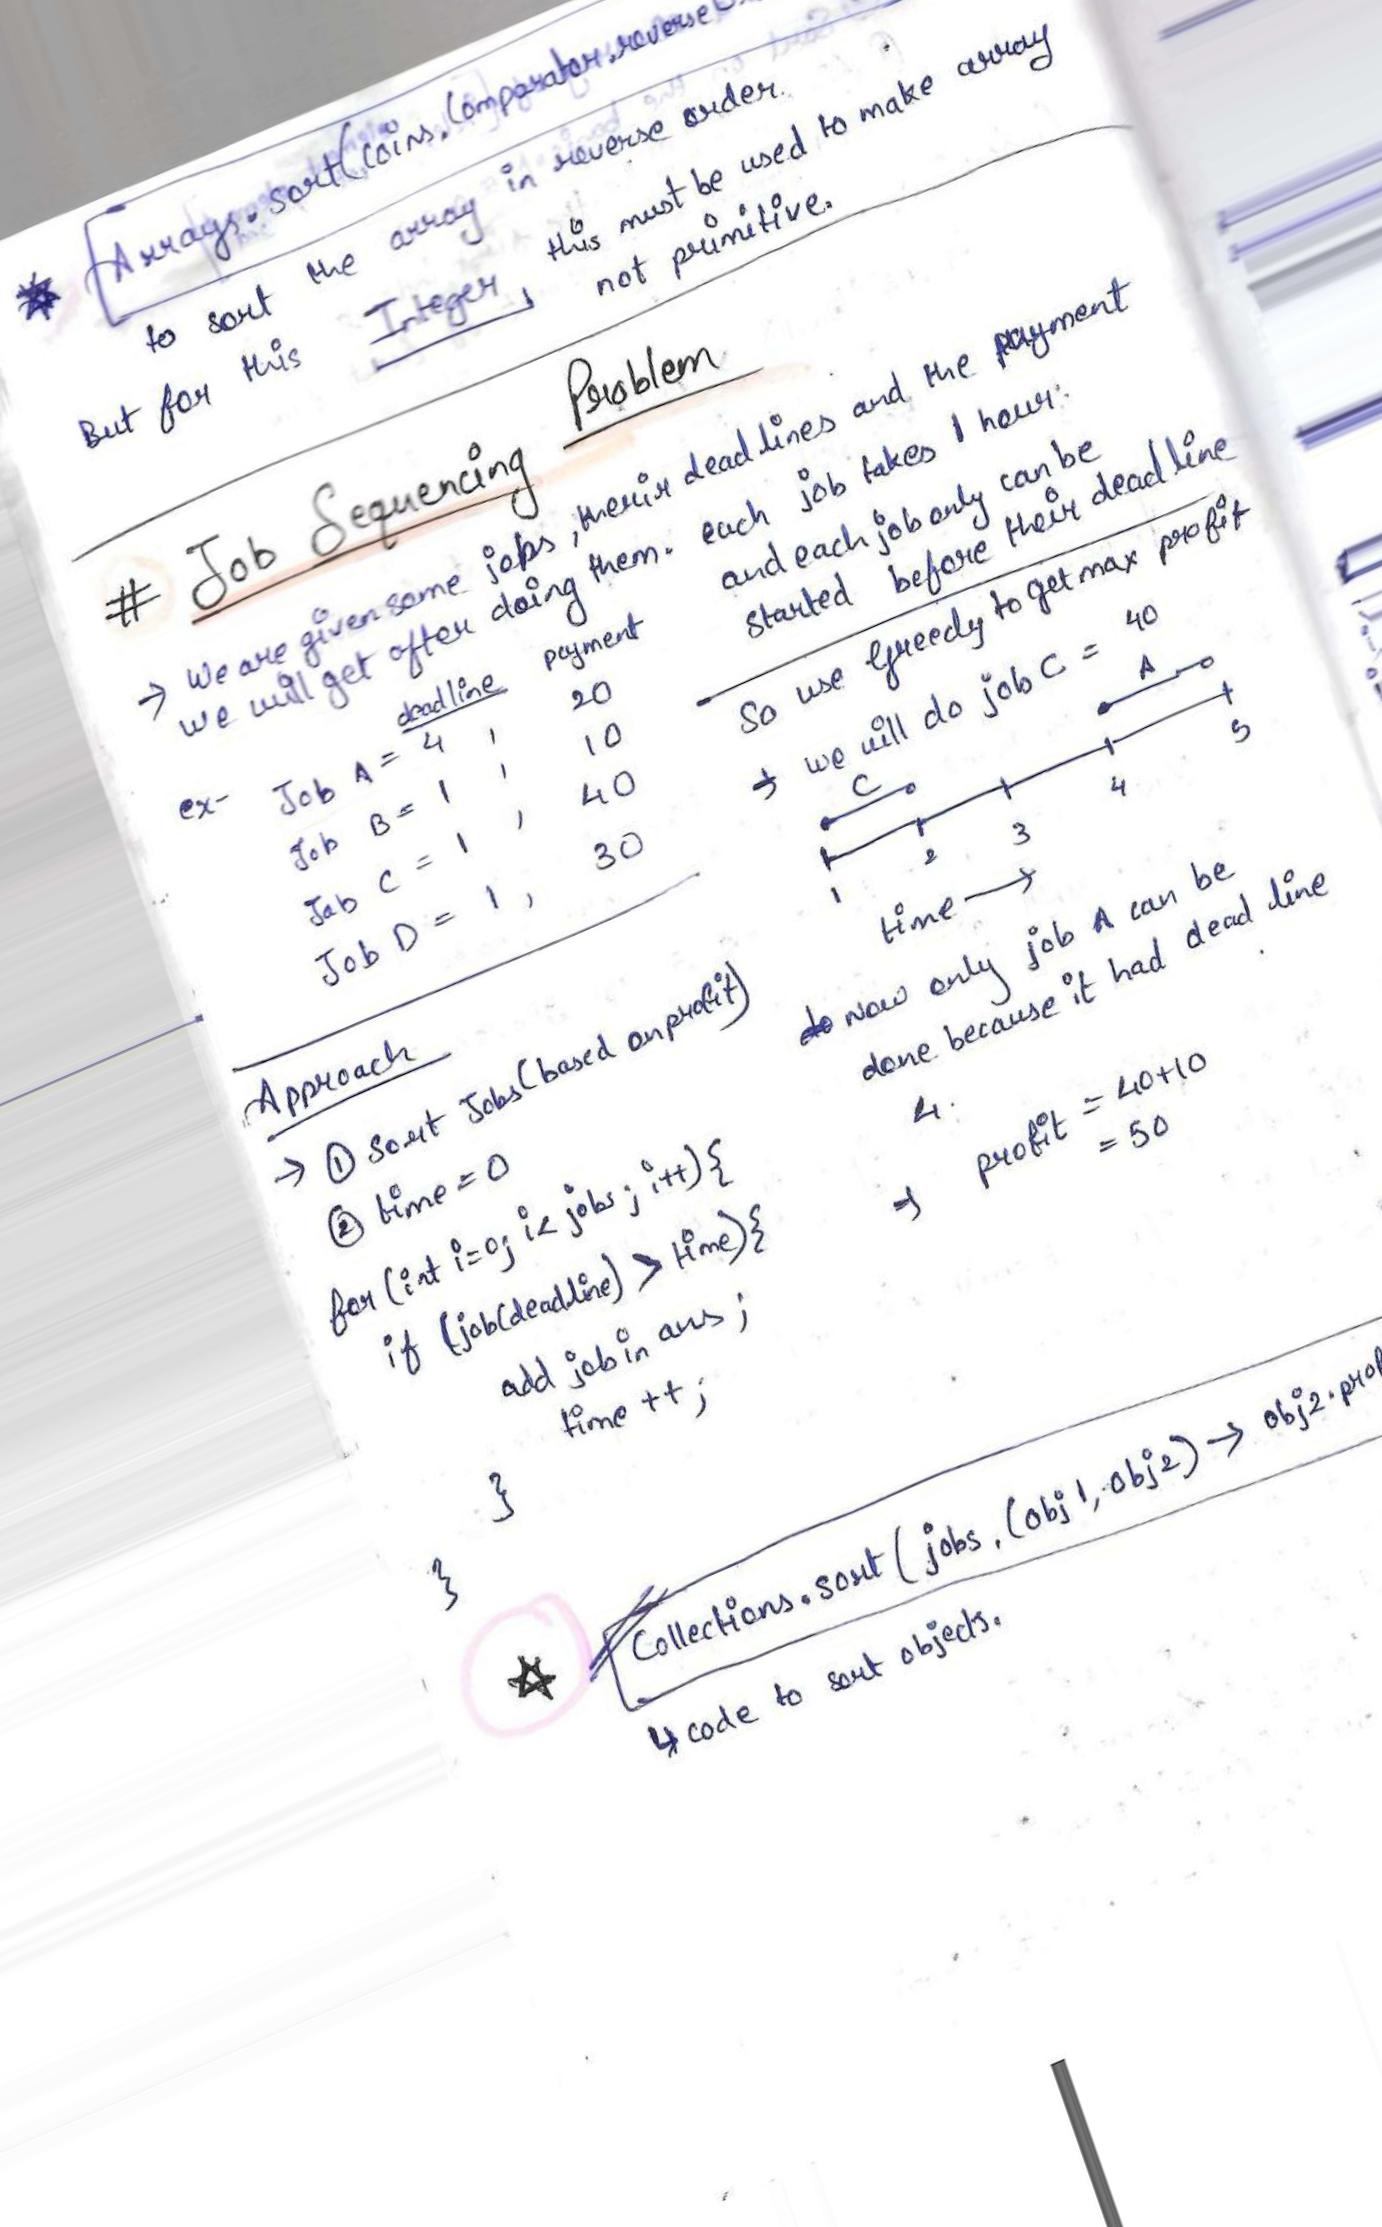 Arrays.sort(coins, Comparator.reverse
to sort the array in reverse order.
But for this Integer, this must be used to make array
not primitive.
# Job Sequencing Problem
→ We are given some jobs, their deadlines and the payment
we will get after doing them. each job takes 1 hour.
and each job only can be
started before their deadline
deadline payment
ex- Job A = 4 , 20
Job B = 1 , 10
Job C = 1 , 40
Job D = 1 , 30
So use Greedy to get max profit
→ we will do job C = 40
C A
1 2 3 4 5
time →
Now only job A can be
done because it had dead line
4.
→ profit = 40+10
= 50
Approach
→ ① Sort Jobs (based on profit)
② time = 0
for (int i=0; i< jobs; i++){
if (job(deadline) > time){
add job in ans;
time ++;
}
}
Collections.sort( jobs, (obj1, obj2) → obj2.prof
↳ code to sort objects.